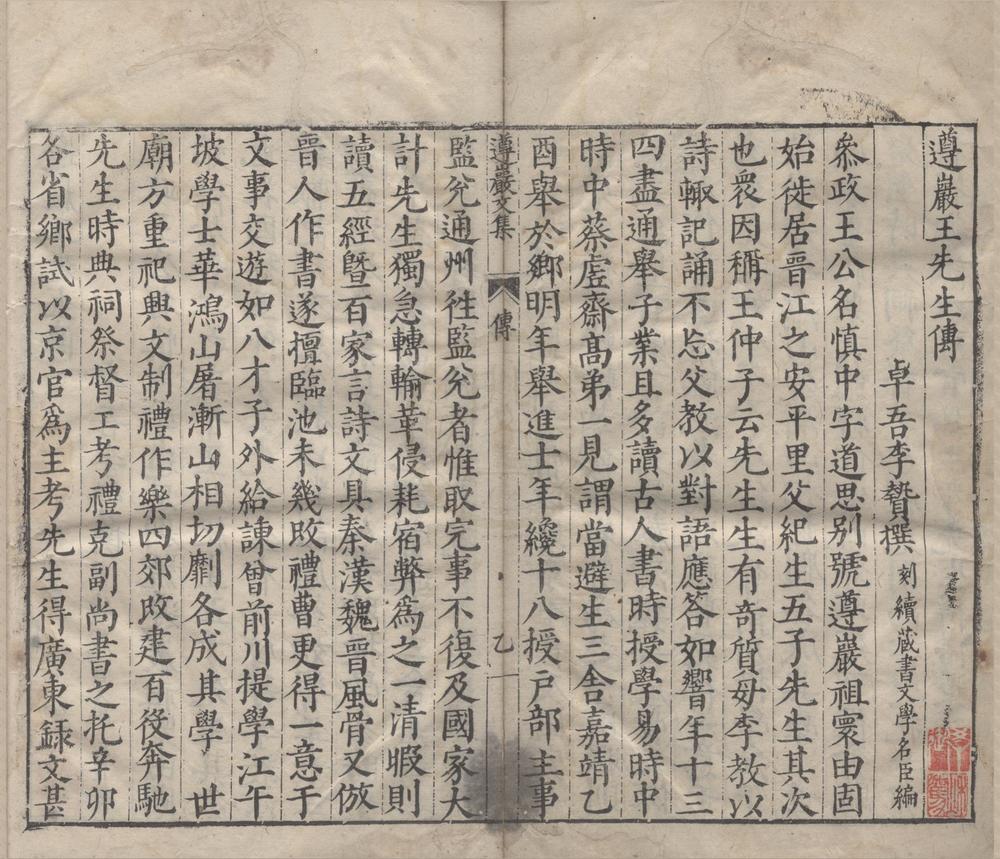 遵巖王先生傳
卓吾李贄撰 刻續蔵書文學名臣編
叅政王公名慎中字道思别號遵巖祖寰由固
始徙居晉江之安平里父紀生五子先生其次
也衆因稱王仲子云先生生有奇質母李教以
詩輙記誦不忘父教以對語應答如響年十三
四盡通舉子業且多讀古人書時授學易時中
時中蔡虗齋髙弟一見謂當避生三舎嘉靖乙
酉舉於鄉明年舉進士年纔十八授户部主事
遵巖文集 傳 乙
監兊通州徃監兊者惟取完事不復及國家大
計先生獨急轉輸革侵耗宿弊為之一清暇則
讀五經暨百家言詩文具秦漢魏晉風骨又倣
晉人作書遂擅臨池未幾攺禮曹更得一意于
文事交遊如八才子外給諫曾前川提學江午
坡學士華鴻山屠漸山相切劘各成其學 世
廟方重祀興文制禮作樂四郊攺建百役奔馳
先生時典祠祭督工考禮克副尚書之托辛卯
各省鄉試以京官為主考先生得廣東録文甚